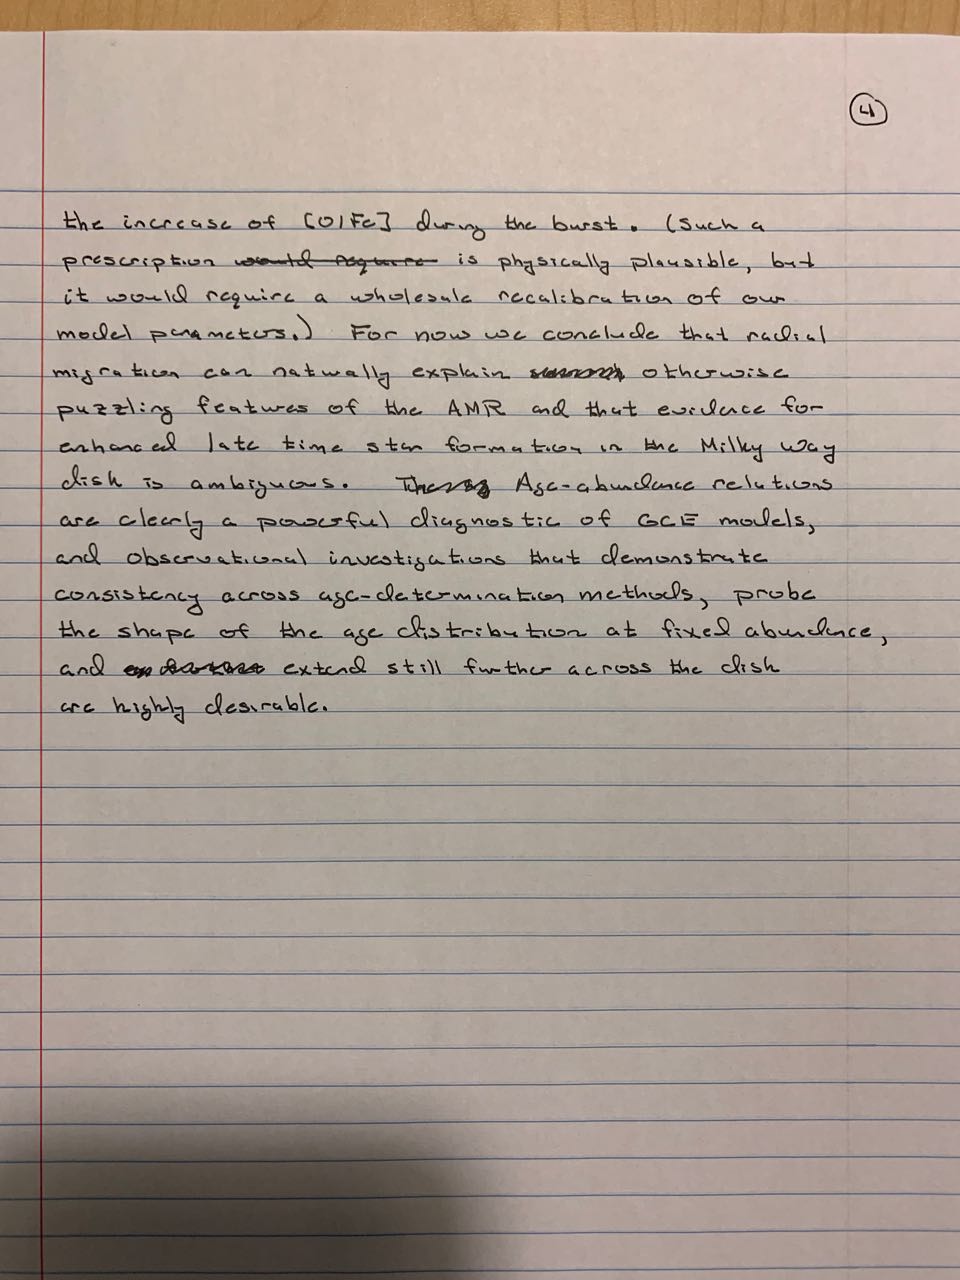 4
the increase of [O/Fe] during the burst. (Such a
prescription would require is physically plausible, but
it would require a wholesale recalibration of our
model parameters.) For now we conclude that radial
migration can naturally explain otherwise
puzzling features of the AMR and that evidence for
enhanced late time star formation in the Milky Way
disk is ambiguous. Age-abundance relations
are clearly a powerful diagnostic of GCE models,
and observational investigations that demonstrate
consistency across age-determination methods, probe
the shape of the age distribution at fixed abundance,
and extend still further across the disk
are highly desirable.